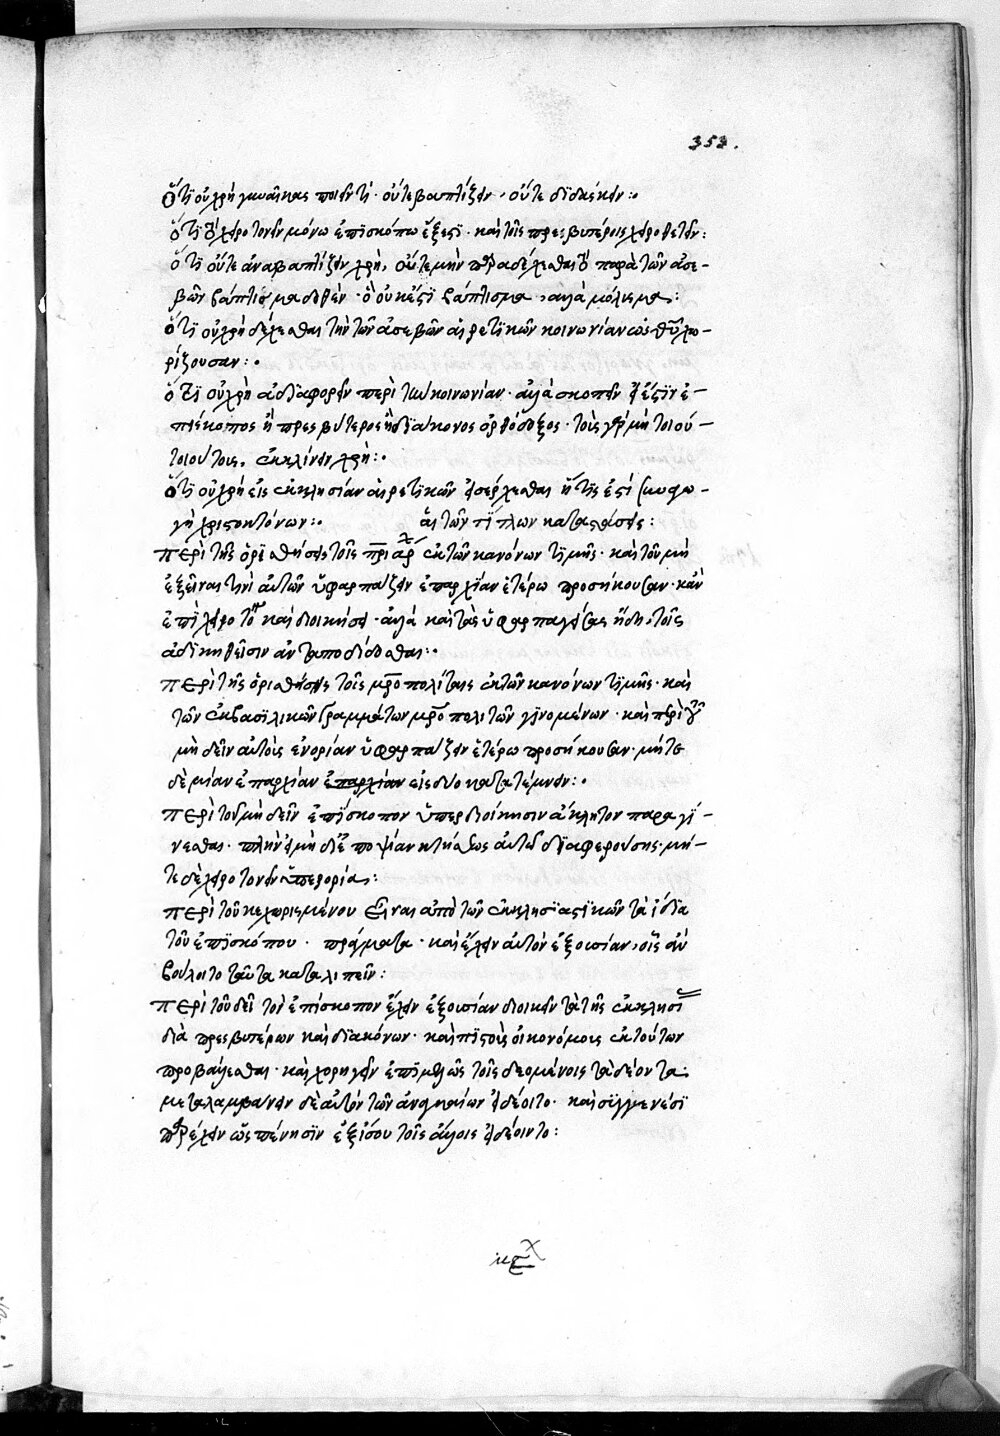 353.
ὅτι οὐ χρὴ γυναῖκας ποιεῖν τί· οὔτε βαπτίζειν, οὔτε διδάσκειν:·
ὅτι χειροτονεῖν μόνω ἐπισκόπω ἔξεστι· καὶ τοῖς πρεσβυτέροις χειροθετεῖν:
ὅτι οὔτε ἀναβαπτίζειν χρὴ, οὔτε μὴν παραδέχεσθαι τὸ παρὰ τῶν ἀσε-
βῶν βάπτισμα δοθὲν· ὃ οὐκ ἔστι βάπτισμα, ἀλλὰ μόλυσμα:
ὅτι οὐ χρὴ δέχεσθαι τὴν τῶν ἀσεβῶν αἱρετικῶν κοινωνίαν ὡς θεοῦ χω-
ρίζουσαν:·
ὅτι οὐ χρὴ ἀδιαφορεῖν περὶ τὴν κοινωνίαν· ἀλλὰ σκοπεῖν εἰ ἔστιν ἐ-
πίσκοπος ἢ πρεσβύτερος ἢ διάκονος ὀρθόδοξος· τοὺς γὰρ μὴ τοιού-
τοιούτους, ἐκκλίνειν χρὴ:·
ὅτι οὐ χρὴ εἰς ἐκκλησίαν αἱρετικῶν εἰσέρχεσθαι ἥτις ἐστὶ συναγω-
γὴ χριστοκτόνων:· αἱ τῶν τίτλων καταστάσεις:
περὶ τῆς ὁρισθείσης τοῖς πριάρχ ἐκ τῶν κανόνων τιμῆς· καὶ τοῦ μὴ
ἐξεῖναι τινὶ αὐτῶν ὑφαρπάζειν ἐπαρχίαν ἑτέρω προσήκουσαν· κἂν
ἐπὶ χειροτο καὶ διοικήσει· ἀλλὰ καὶ τὰς ὑφαρπαγείσας ἤδη, τοῖς
ἀδικηθεῖσιν ἀνταποδίδοσθαι:·
περὶ τῆς ὁρισθείσης τοῖς μροπολίταις ἐκ τῶν κανόνων τιμῆς· καὶ
τῶν ἐκ βασιλικῶν γραμμάτων μροπολιτῶν γινομένων· καὶ περὶ τοῦ
μὴ δεῖν αὐτοὺς ἐνορίαν ὑφαρπάζειν ἑτέρω προσήκουσαν· μήτε
δὲ μίαν ἐπαρχίαν ἐπαρχίαν εἰς δύο κατατέμνειν:·
περὶ τοῦ μὴ δεῖν ἐπίσκοπον ὑπερδιοίκησιν ἄκλητον παραγί-
νεσθαι· πλὴν εἰ μὴ δι' ἐποψίαν αὐτῶ διαφερούσης· μή-
τε δὲ χειροτονεῖν ὑπερορίας:
περὶ τοῦ κεχωρισμένου εἶναι ἀπὸ τῶν ἐκκλησιαστικῶν τὰ ἴδια
τοῦ ἐπισκόπου· πράγματα· καὶ ἔχειν αὐτὸν ἐξουσίαν, οἷς ἂν
βούλοιτο ταῦτα καταλιπεῖν:
περὶ τοῦ δεῖ τὸν ἐπίσκοπον ἔχειν ἐξουσίαν διοικεῖν τὰ τῆς ἐκκλησί
διὰ πρεσβυτέρων καὶ διακόνων· καὶ πιστοὺς οἰκονόμους ἐκ τούτων
προβάλλεσθαι· καὶ χορηγεῖν ἐπιμελῶς τοῖς δεομένοις τὰ δέοντα:
μεταλαμβάνειν δὲ αὐτὸν τῶν ἀναγκαίων εἰ δέοιτο· καὶ συγγενέσι
παρέχειν ὡς πένησιν ἐξίσου τοῖς ἄλλοις εἰ δέοιντο: